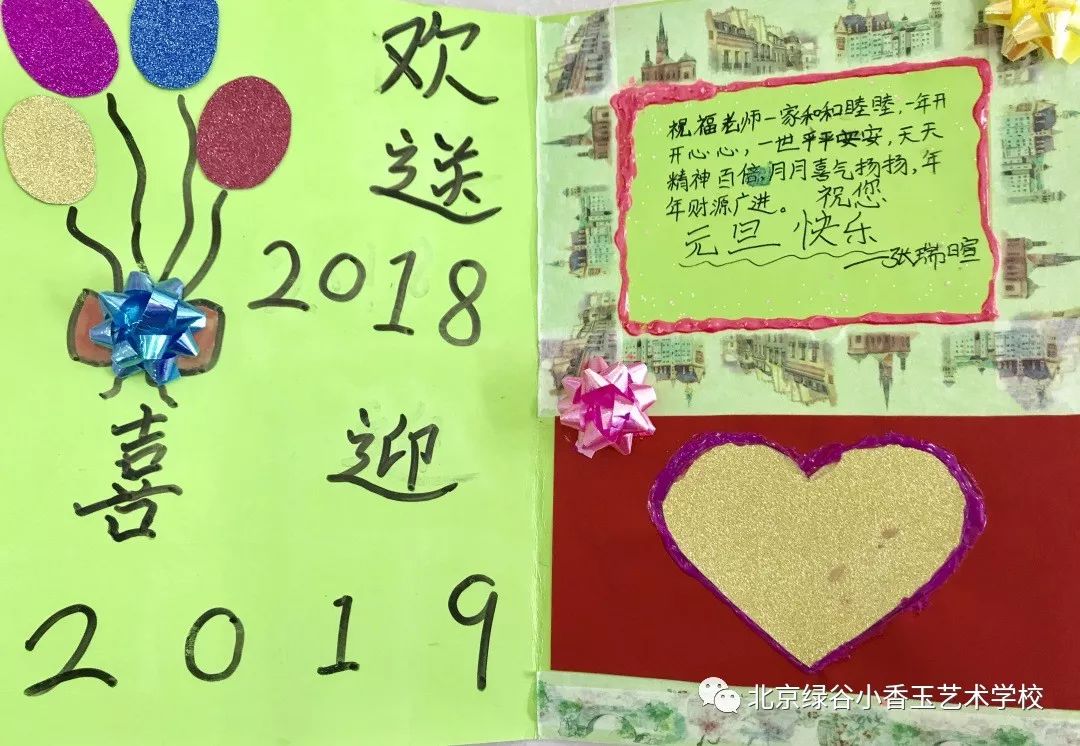 欢
送
2018
喜 迎
2019
祝福老师一家和和睦睦,一年开
开心心,一世平平安安,天天
精神百倍,月月喜气扬扬,年
年财源广进。 祝您
元旦 快乐
——张瑞暄
北京绿谷小香玉艺术学校